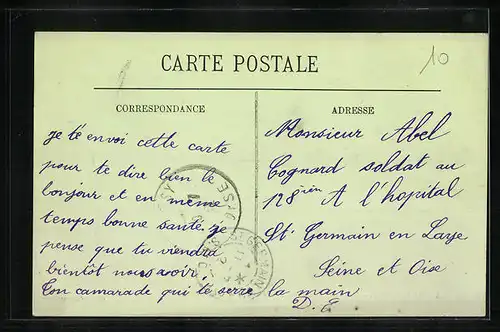 10
CARTE POSTALE
CORRESPONDANCE
je té envoi cette carte
pour te dire bien le
bonjour et en même
temps bonne santé. je
pense que tu viendra
bientôt nous savoir,
Ton camarade qui te serre la main
D. E.
ADRESSE
Monsieur Abel
Cognard soldat au
128 ièm A l'hopital
St. Germain en Laye
Seine et Oise
GERMAIN